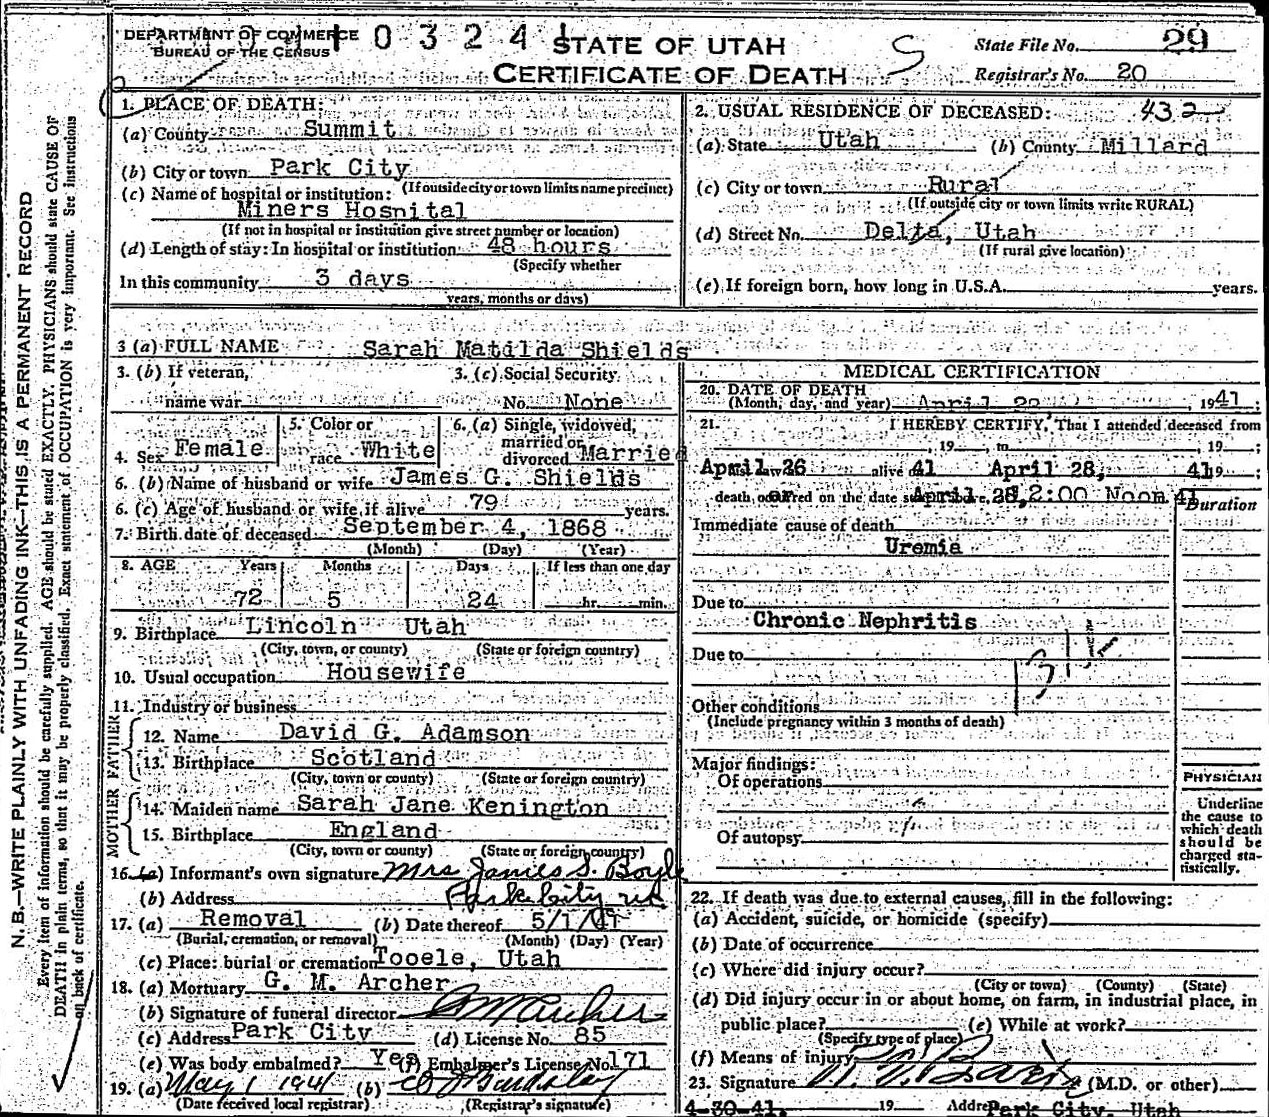 DEPARTMENT OF COMMERCE
BUREAU OF THE CENSUS
0 3 2 4
STATE OF UTAH
CERTIFICATE OF DEATH
S
State File No. 29
Registrar's No. 20
1. PLACE OF DEATH:
(a) County Summit
(b) City or town Park City
(If outside city or town limits name precinct)
(c) Name of hospital or institution:
Miners Hospital
(If not in hospital or institution give street number or location)
(d) Length of stay: In hospital or institution 48 hours
(Specify whether
In this community 3 days
years, months or days)
2. USUAL RESIDENCE OF DECEASED: 432
(a) State Utah (b) County Millard
(c) City or town Rural
(If outside city or town limits write RURAL)
(d) Street No. Delta, Utah
(If rural give location)
(e) If foreign born, how long in U.S.A. years.
3 (a) FULL NAME Sarah Matilda Shields
3. (b) If veteran, name war
3. (c) Social Security No. None
4. Sex Female
5. Color or race White
6. (a) Single, widowed, married or divorced Married
6. (b) Name of husband or wife James G. Shields
6. (c) Age of husband or wife, if alive 79 years.
7. Birth date of deceased September 4, 1868
(Month) (Day) (Year)
8. AGE Years Months Days If less than one day
72 5 24 hr. min.
9. Birthplace Lincoln Utah
(City, town, or county) (State or foreign country)
10. Usual occupation Housewife
11. Industry or business
FATHER
12. Name David G. Adamson
13. Birthplace Scotland
(City, town or county) (State or foreign country)
MOTHER
14. Maiden name Sarah Jane Kenington
15. Birthplace England
(City, town or county) (State or foreign country)
16. (a) Informant's own signature Mrs James S. Boyle
(b) Address Park City Ut
17. (a) Removal (b) Date thereof 5/1/41
(Burial, cremation, or removal) (Month) (Day) (Year)
(c) Place: burial or cremation Tooele, Utah
18. (a) Mortuary G. M. Archer
(b) Signature of funeral director GM Archer
(c) Address Park City (d) License No. 85
(e) Was body embalmed? Yes (f) Embalmer's License No. 171
19. (a) May 1 1941 (b)
(Date received local registrar) (Registrar's signature)
MEDICAL CERTIFICATION
20. DATE OF DEATH
(Month, day, and year) April 28 , 1941;
21. I HEREBY CERTIFY, That I attended deceased from
, 19 , to , 19 ;
April 26 alive 41 April 28, 41 19 ;
death, occurred on the date April 28, 12:00 Noon 41
Duration
Immediate cause of death
Uremia
Due to
Chronic Nephritis
Due to
Other conditions
(Include pregnancy within 3 months of death)
Major findings:
Of operations
Of autopsy
PHYSICIAN
Underline
the cause to
which death
should be
charged sta-
tistically.
22. If death was due to external causes, fill in the following:
(a) Accident, suicide, or homicide (specify)
(b) Date of occurrence
(c) Where did injury occur?
(City or town) (County) (State)
(d) Did injury occur in or about home, on farm, in industrial place, in
public place? (e) While at work?
(Specify type of place)
(f) Means of injury
23. Signature (M.D. or other)
4-30-41. 19 Address Park City, Utah
N. B.—WRITE PLAINLY WITH UNFADING INK—THIS IS A PERMANENT RECORD
Every item of information should be carefully supplied. AGE should be stated EXACTLY. PHYSICIANS should state CAUSE OF
DEATH in plain terms, so that it may be properly classified. Exact statement of OCCUPATION is very important. See instructions
on back of certificate.